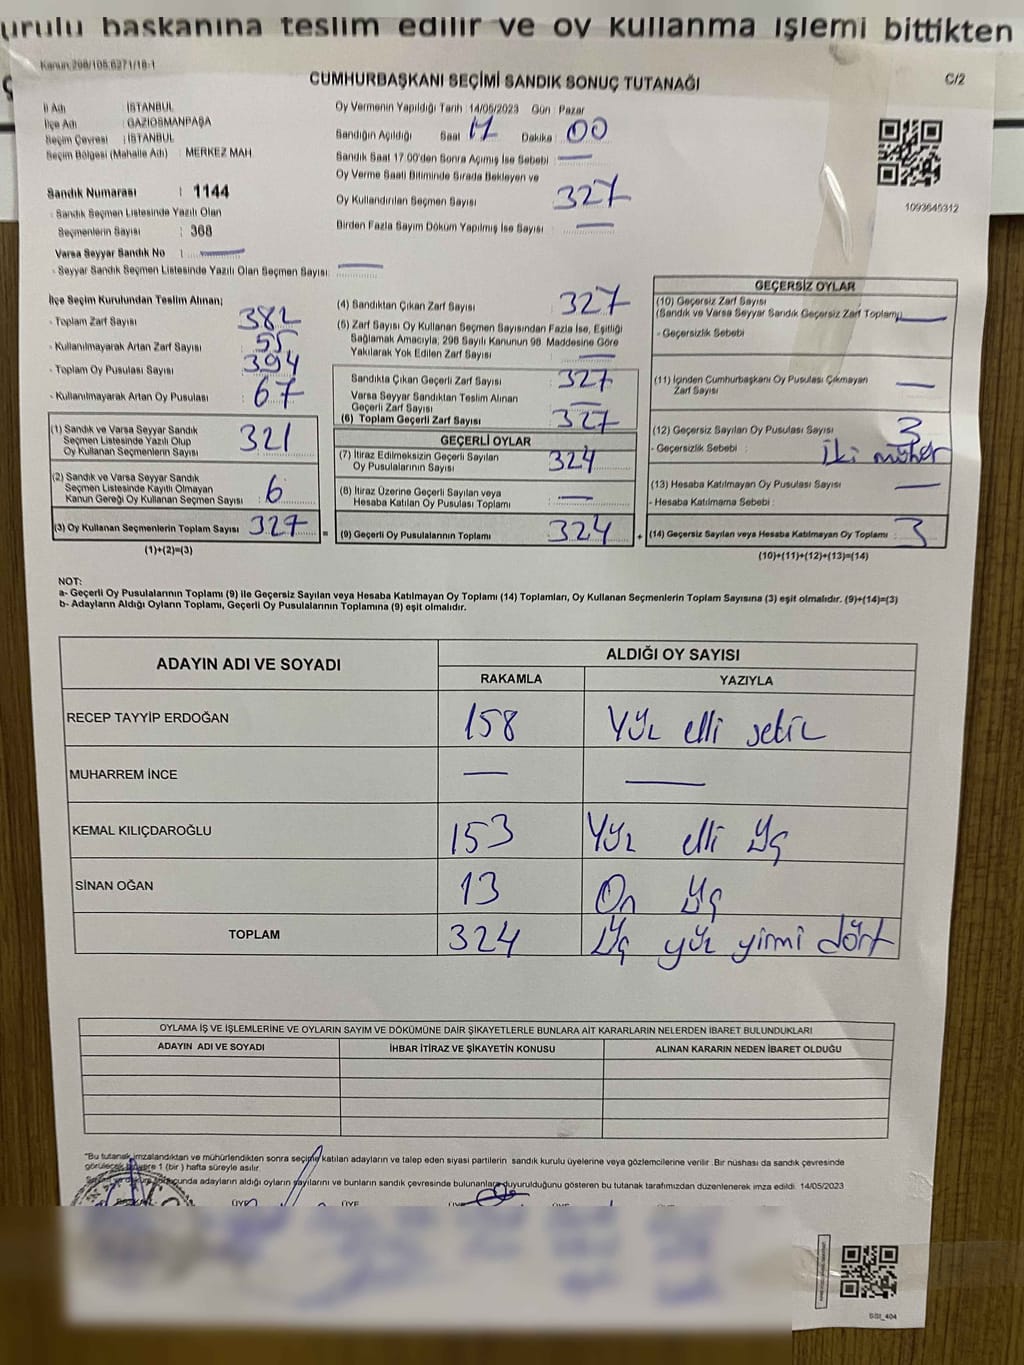 urulu başkanına teslim edilir ve oy kullanma işlemi bittikten
Kanun:298/105,6271/18-1
CUMHURBAŞKANI SEÇİMİ SANDIK SONUÇ TUTANAĞI
C/2
İl Adı : İSTANBUL
İlçe Adı : GAZİOSMANPAŞA
Seçim Çevresi : İSTANBUL
Seçim Bölgesi (Mahalle Adı) : MERKEZ MAH.
Sandık Numarası : 1144
- Sandık Seçmen Listesinde Yazılı Olan
Seçmenlerin Sayısı : 368
Varsa Seyyar Sandık No : —
- Seyyar Sandık Seçmen Listesinde Yazılı Olan Seçmen Sayısı: —
Oy Vermenin Yapıldığı Tarih :14/05/2023 Gün : Pazar
Sandığın Açıldığı Saat 17 Dakika : 00
Sandık Saat 17:00'den Sonra Açımış İse Sebebi : —
Oy Verme Saati Bitiminde Sırada Bekleyen ve
Oy Kullandırılan Seçmen Sayısı : 327
Birden Fazla Sayım Döküm Yapılmış İse Sayısı : —
1093645312
İlçe Seçim Kurulundan Teslim Alınan;
- Toplam Zarf Sayısı : 382
- Kullanılmayarak Artan Zarf Sayısı : 55
- Toplam Oy Pusulası Sayısı : 394
- Kullanılmayarak Artan Oy Pusulası : 67
(1) Sandık ve Varsa Seyyar Sandık
Seçmen Listesinde Yazılı Olup
Oy Kullanan Seçmenlerin Sayısı : 321
(2) Sandık ve Varsa Seyyar Sandık
Seçmen Listesinde Kayıtlı Olmayan
Kanun Gereği Oy Kullanan Seçmen Sayısı : 6
(3) Oy Kullanan Seçmenlerin Toplam Sayısı : 327
(1)+(2)=(3)
(4) Sandıktan Çıkan Zarf Sayısı : 327
(5) Zarf Sayısı Oy Kullanan Seçmen Sayısından Fazla İse, Eşitliği
Sağlamak Amacıyla, 298 Sayılı Kanunun 98. Maddesine Göre
Yakılarak Yok Edilen Zarf Sayısı : —
Sandıkta Çıkan Geçerli Zarf Sayısı : 327
Varsa Seyyar Sandıktan Teslim Alınan
Geçerli Zarf Sayısı : —
(6) Toplam Geçerli Zarf Sayısı : 327
GEÇERLİ OYLAR
(7) İtiraz Edilmeksizin Geçerli Sayılan
Oy Pusulalarının Sayısı : 324
(8) İtiraz Üzerine Geçerli Sayılan veya
Hesaba Katılan Oy Pusulaları Toplamı : —
= (9) Geçerli Oy Pusulalarının Toplamı : 324
GEÇERSİZ OYLAR
(10) Geçersiz Zarf Sayısı
(Sandık ve Varsa Seyyar Sandık Geçersiz Zarf Toplamı) —
- Geçersizlik Sebebi
(11) İçinden Cumhurbaşkanı Oy Pusulası Çıkmayan
Zarf Sayısı : —
(12) Geçersiz Sayılan Oy Pusulası Sayısı : 3
- Geçersizlik Sebebi : İki mühür
(13) Hesaba Katılmayan Oy Pusulası Sayısı : —
- Hesaba Katılmama Sebebi :
+ (14) Geçersiz Sayılan veya Hesaba Katılmayan Oy Toplamı : 3
(10)+(11)+(12)+(13)=(14)
NOT:
a- Geçerli Oy Pusulalarının Toplamı (9) ile Geçersiz Sayılan veya Hesaba Katılmayan Oy Toplamı (14) Toplamları, Oy Kullanan Seçmenlerin Toplam Sayısına (3) eşit olmalıdır. (9)+(14)=(3)
b- Adayların Aldığı Oyların Toplamı, Geçerli Oy Pusulalarının Toplamına (9) eşit olmalıdır.
ADAYIN ADI VE SOYADI
ALDIĞI OY SAYISI
RAKAMLA YAZIYLA
RECEP TAYYİP ERDOĞAN 158 Yüz elli sekiz
MUHARREM İNCE — —
KEMAL KILIÇDAROĞLU 153 Yüz elli üç
SİNAN OĞAN 13 On üç
TOPLAM 324 Üç yüz yirmi dört
OYLAMA İŞ VE İŞLEMLERİNE VE OYLARIN SAYIM VE DÖKÜMÜNE DAİR ŞİKAYETLERLE BUNLARA AİT KARARLARIN NELERDEN İBARET BULUNDUKLARI
ADAYIN ADI VE SOYADI İHBAR İTİRAZ VE ŞİKAYETİN KONUSU ALINAN KARARIN NEDEN İBARET OLDUĞU
"Bu tutanak imzalandıktan ve mühürlendikten sonra seçime katılan adayların ve talep eden siyasi partilerin sandık kurulu üyelerine veya gözlemcilerine verilir .Bir nüshası da sandık çevresinde
görülecek bir yere 1 (bir ) hafta süreyle asılır.
sonucunda adayların aldığı oyların sayılarını ve bunların sandık çevresinde bulunanlara duyurulduğunu gösteren bu tutanak tarafımızdan düzenlenerek imza edildi. 14/05/2023
ÜYE ÜYE
SSI_404